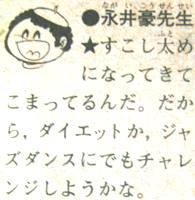 ●永井豪先生
★すこし太め
になってきて
こまってるんだ。だ
から，ダイエットか，ジャ
ズダンスにでもチャレ
ンジしようかな。